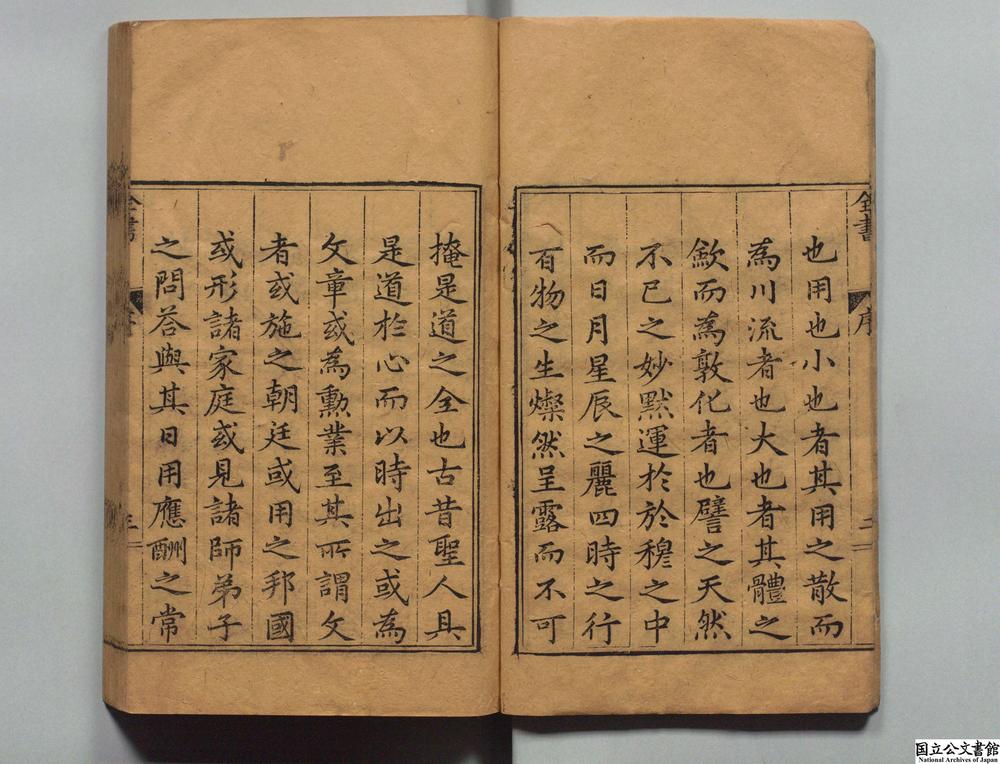 全書
序
二
也用也小也者其用之散而
為川流者也大也者其體之
歛而為敦化者也譬之天然
不已之妙默運於於穆之中
而日月星辰之麗四時之行
百物之生燦然呈露而不可
掩是道之全也古昔聖人具
是道於心而以時出之或為
文章或為勲業至其所謂文
者或施之朝廷或用之邦國
或形諸家庭或見諸師弟子
之問荅與其日用應酬之常
全書
序
三
国立公文書館
National Archives of Japan